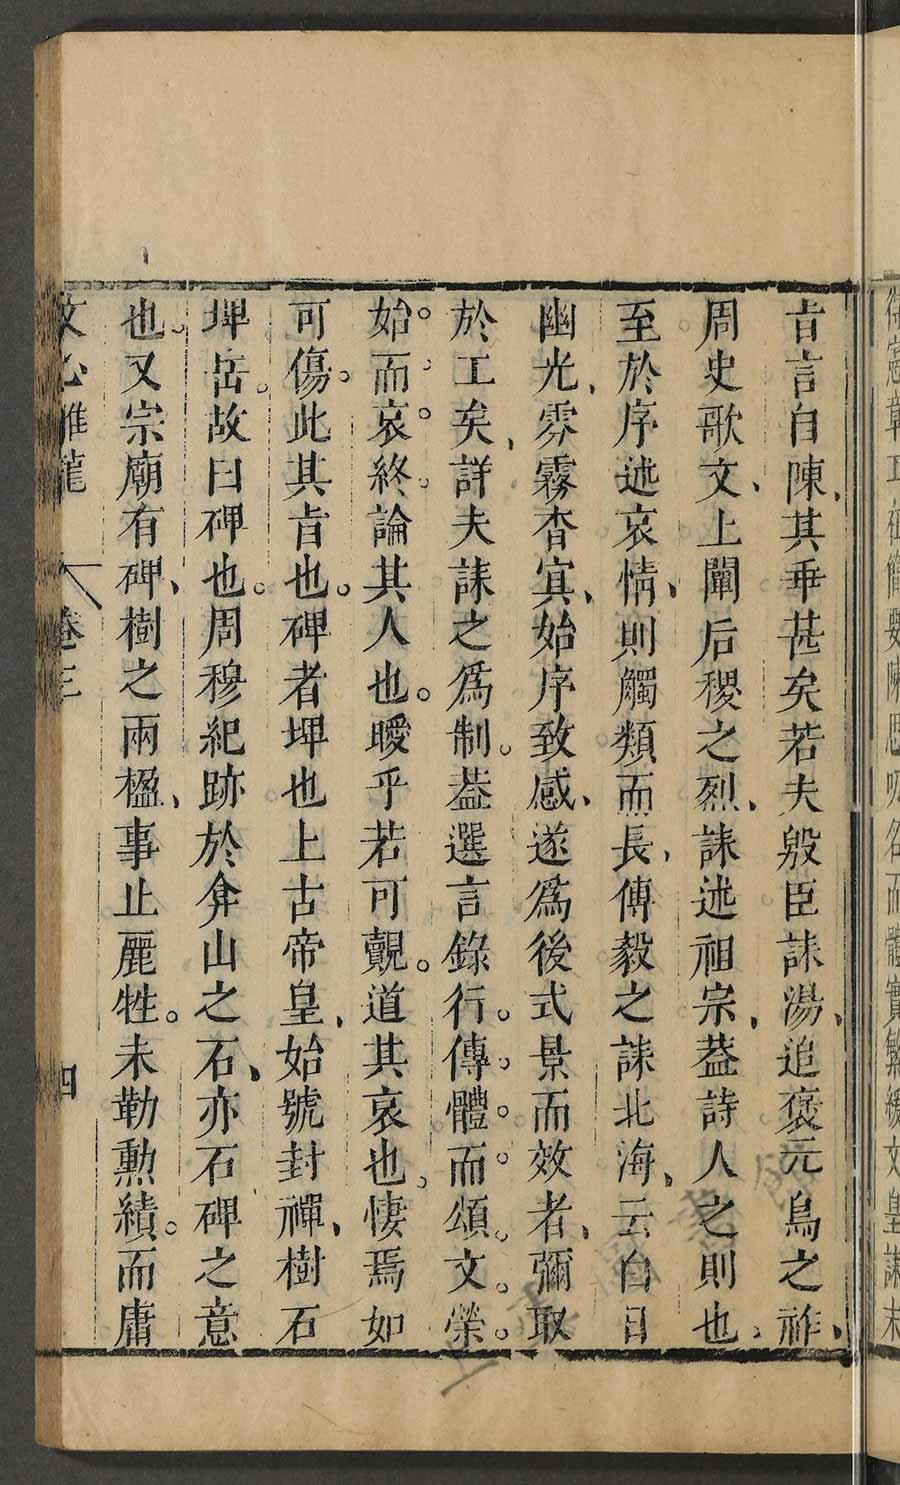 旨言自陳其乖甚矣若夫殷臣誄湯追褒元鳥之祚
周史歌文上闡后稷之烈誄述祖宗葢詩人之則也
至於序述哀情則觸類而長傅毅之誄北海云白日
幽光雰霧杳冥始序致感遂爲後式景而效者彌取
於工矣詳夫誄之爲制葢選言錄行傳體而頌文榮
始而哀終論其人也曖乎若可覿道其哀也悽焉如
可傷此其旨也碑者埤也上古帝皇始號封禪樹石
埤岳故曰碑也周穆紀跡於弇山之石亦石碑之意
也又宗廟有碑樹之兩楹事止麗牲未勒勲績而庸
文心雕龍 卷三 四